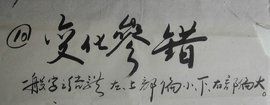 ⑩变化参错
一般字之结体左、上部偏小、下、右部偏大。